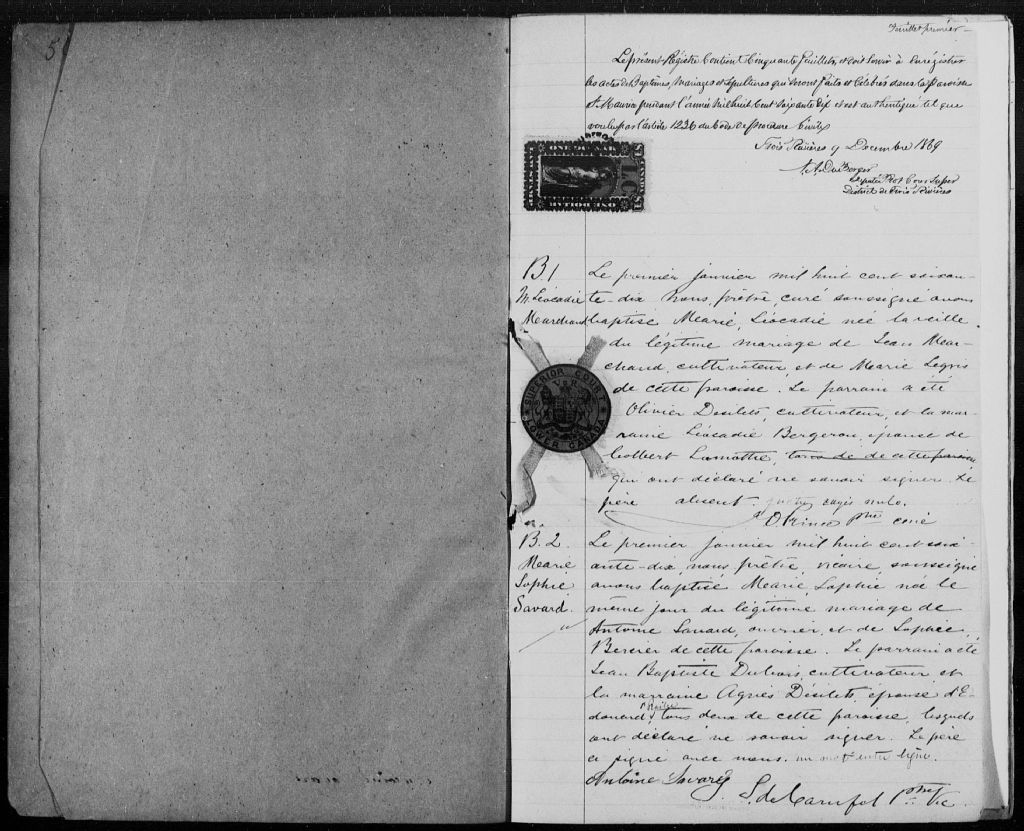 5
Feuillet premier
Le présent Registre Contient Cinquante feuillets et doit servir à Enrégistrer
les actes de Baptêmes, Mariages et Sépultures qui seront faits et Célébrés dans la Paroisse
St. Maurice pendant l'année Mil huit Cent Soixante Dix et est authentiqué tel que
voulu par l'article 1236 du Code de procédure Civile
Trois Rivières 9 Decembre 1869
Député Prot Cour Super
District de Trois Rivières
ONE DOLLAR
ONE DOLLAR
B 1
M. Léocadie
Marchand
Le premier janvier mil huit cent soixan-
te-dix Nous, prêtre, curé soussigné avons
baptisé Marie, Léocadie née la veille
du légitime mariage de Jean Mar-
chand, cultivateur, et de Marie Legris
de cette paroisse. Le parrain a été
Olivier Désilets, cultivateur, et la mar-
raine Léocadie Bergeron, épouse de
Colbert Lamothe, tous de de cette paroisse,
qui ont déclaré ne savoir signer. Le
père absent. quatre rayés nuls.
O. Prince Ptre curé
SUPERIOR COURT
V R
LOWER CANADA
B. 2.
Marie
Sophie
Savard.
Le premier janvier mil huit cent soix-
ante-dix, nous prêtre, vicaire, soussigné
avons baptisé Marie, Sophie née le
même jour du légitime mariage de
Antoine Savard, ouvrier, et de Sophie
Bercier de cette paroisse. Le parrain a été
Jean Baptiste Dubois, cultivateur et
la marraine Agnès Désilets, épouse d'E-
douard tous deux de cette paroisse, lesquels
ont déclaré ne savoir signer. Le père
a signé avec nous. un mot entre ligne.
Antoine Savard
S. de Carufel Ptre Vic